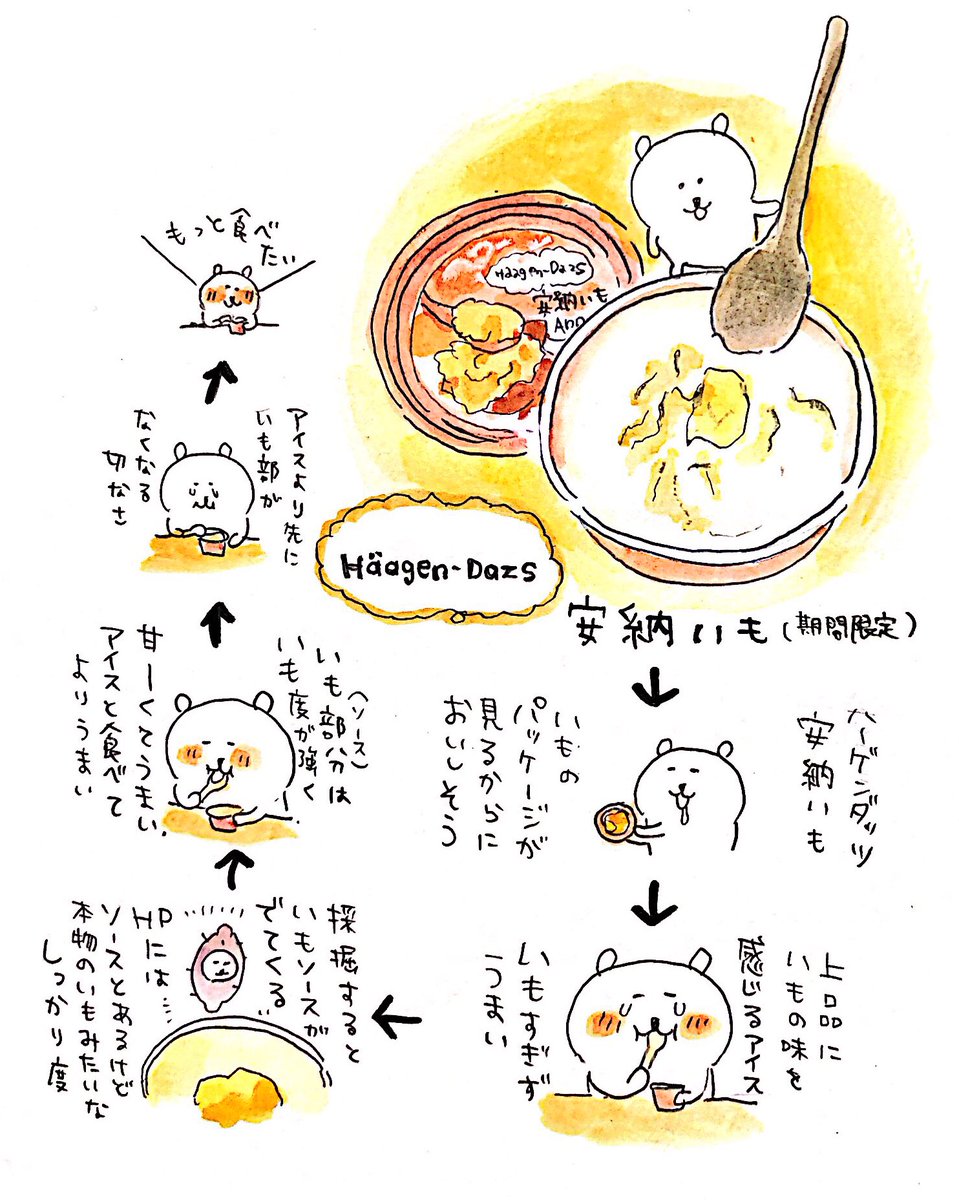 Häagen-Dazs
安納いも
Ann
Häagen-Dazs
安納いも(期間限定)
ハーゲンダッツ
安納いも
いもの
パッケージが
見るからに
おいしそう
上品に
いもの味を
感じるアイス
いもすぎず
うまい
採掘すると
いもソースが
でてくる
HPには…
ソースとあるけど
本物のいもみたいな
しっかり度
(ソース)
いも部分は
いも度が強く
甘ーくてうまい。
アイスと食べて
よりうまい
アイスより先に
いも部が
なくなる
切なさ
もっと食べ
たい